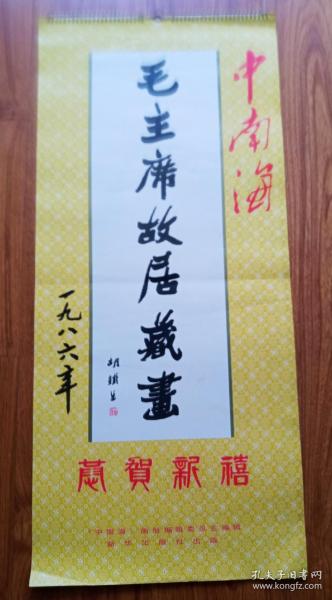 中南海
毛主席故居藏畫
胡鐵生
一九八六年
恭賀新禧
新华出版社出版
孔夫子旧书网